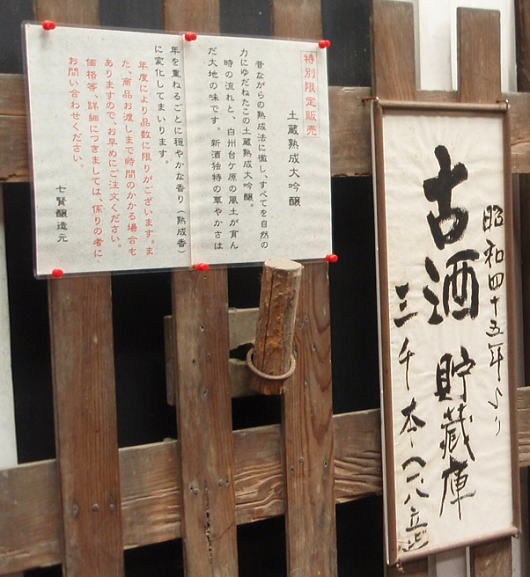 特別限定販売
土蔵熟成大吟醸
昔ながらの熟成法に徹し、すべてを自然の
力にゆだねたこの土蔵熟成大吟醸。
時の流れと、白州台ケ原の風土が育ん
だ大地の味です。新酒独特の華やかさは
年を重ねるごとに穏やかな香り(熟成香)
に変化してまいります。
年度により品数に限りがございます。ま
た、商品お渡しまで時間のかかる場合も
ありますので、お早めにご注文ください。
価格等、詳細につきましては、係りの者に
お問い合わせください。
七賢醸造元
昭和四十五年より
古酒貯蔵庫
三千本